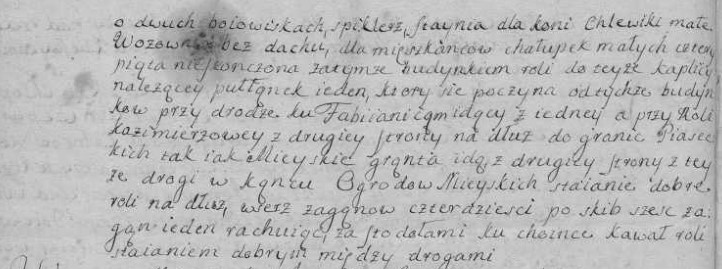 o dwuch boiowiskach, spiklerz, staynia dla koni Chlewiki małe
Wozownia bez dachu, dla mięszkańcow chałupek małych cztery
piąta nieskończona zatymze budynkiem roli do teyże kaplicy
należącey pułłanek ieden, ktory się poczyna od tychże budyn
kow przy drodze ku Fabiianicąm idącey z iedney a przy Roli
kazimierzowey z drugiey strony na dłuż do granic Piasec
kich tak iak Mieyskie grąnta idą, z drugiey strony z tey
że drogi w kąncu Ogrodow Mieyskich staianie dobre
roli na dłuż, wszerz zagąnow czterdziesci po skib szesc za:
gąn ieden rachuiąc, za stodołami ku choince kawał roli
staianiem dobrym między drogami